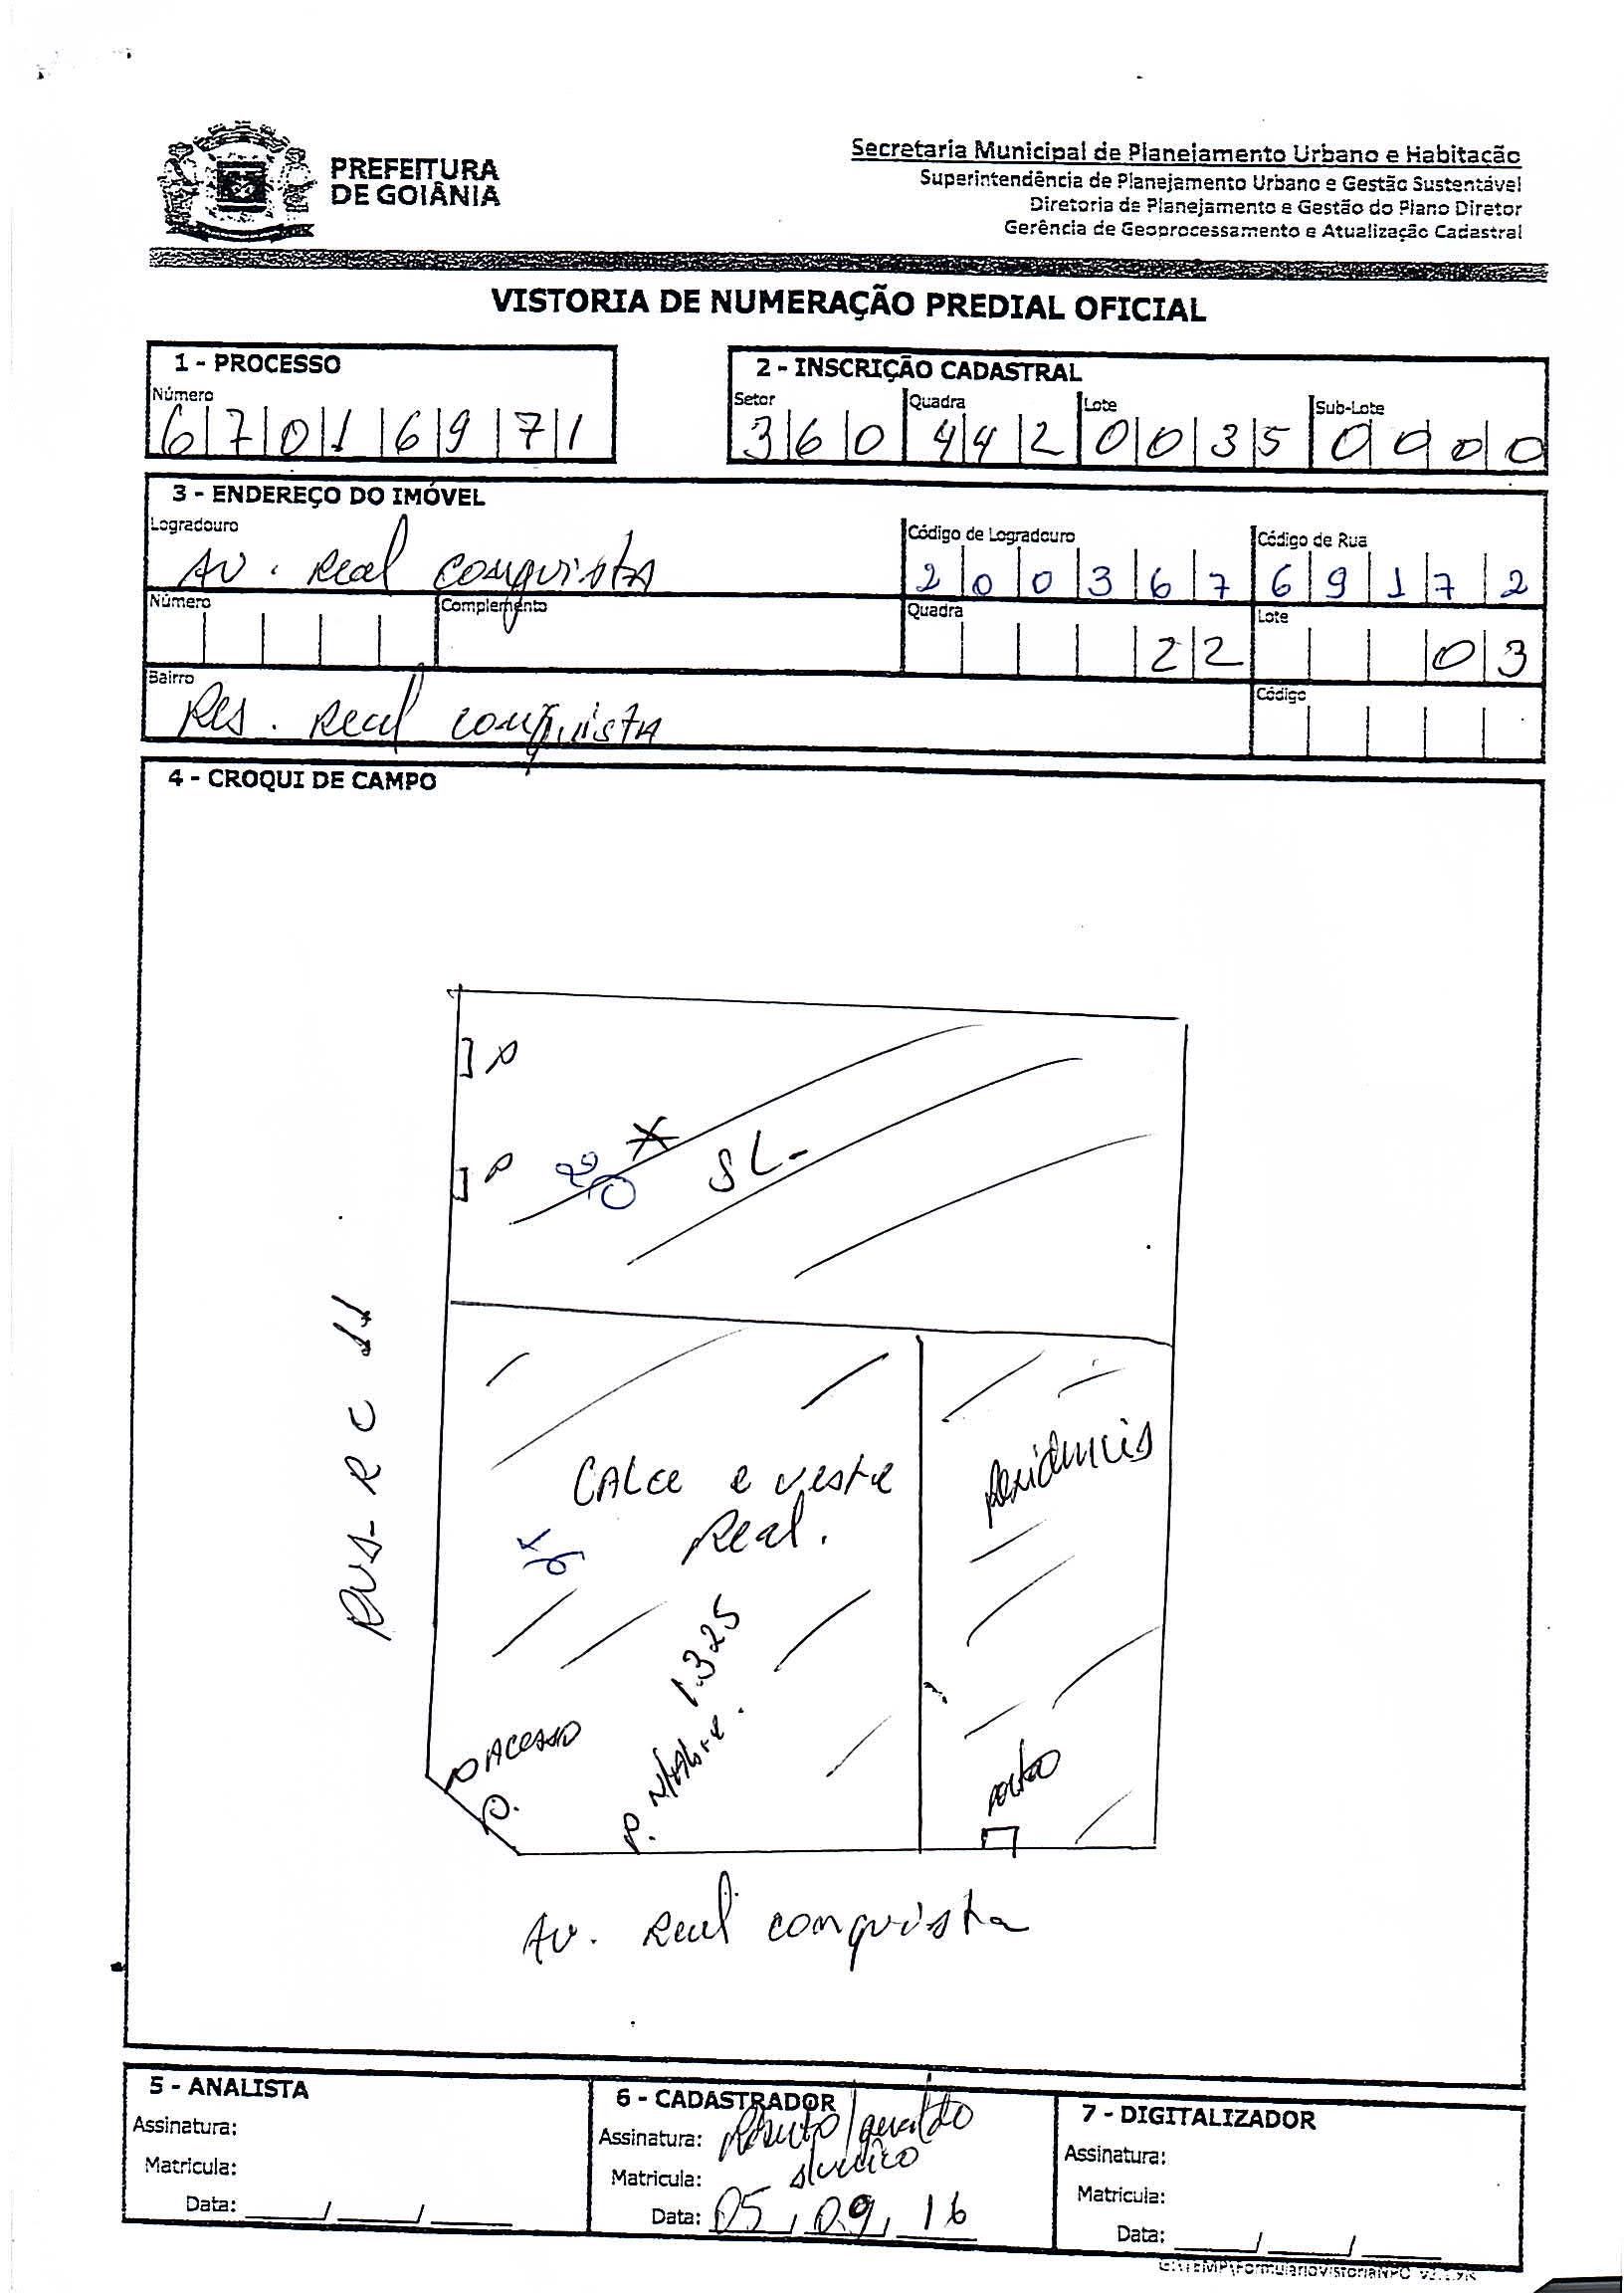 PREFEITURA
DE GOIÂNIA
Secretaria Municipal de Planejamento Urbano e Habitação
Superintendência de Planejamento Urbano e Gestão Sustentável
Diretoria de Planejamento e Gestão do Plano Diretor
Gerência de Geoprocessamento e Atualização Cadastral
VISTORIA DE NUMERAÇÃO PREDIAL OFICIAL
1 - PROCESSO
Número
6 7 0 1 6 9 7 1
2 - INSCRIÇÃO CADASTRAL
Setor Quadra Lote Sub-Lote
3 6 0 4 4 2 0 0 3 5 0 0 0 0
3 - ENDEREÇO DO IMÓVEL
Logradouro Código de Logradouro Código de Rua
Av. Real conquista 2 0 0 3 6 7 6 9 1 7 2
Número Complemento Quadra Lote
2 2 0 3
Bairro Código
Res. Real conquista
4 - CROQUI DE CAMPO
P
P
SL-
RUA RC 11
CALCE e veste
Real.
Residencia
1.325
ACESSO
P.
P.
Av. Real conquista
5 - ANALISTA
Assinatura:
Matricula:
Data: ___/___/___
6 - CADASTRADOR
Assinatura: Roberto/geraldo
Matricula:
Data: 05/09/16
7 - DIGITALIZADOR
Assinatura:
Matricula:
Data: ___/___/___